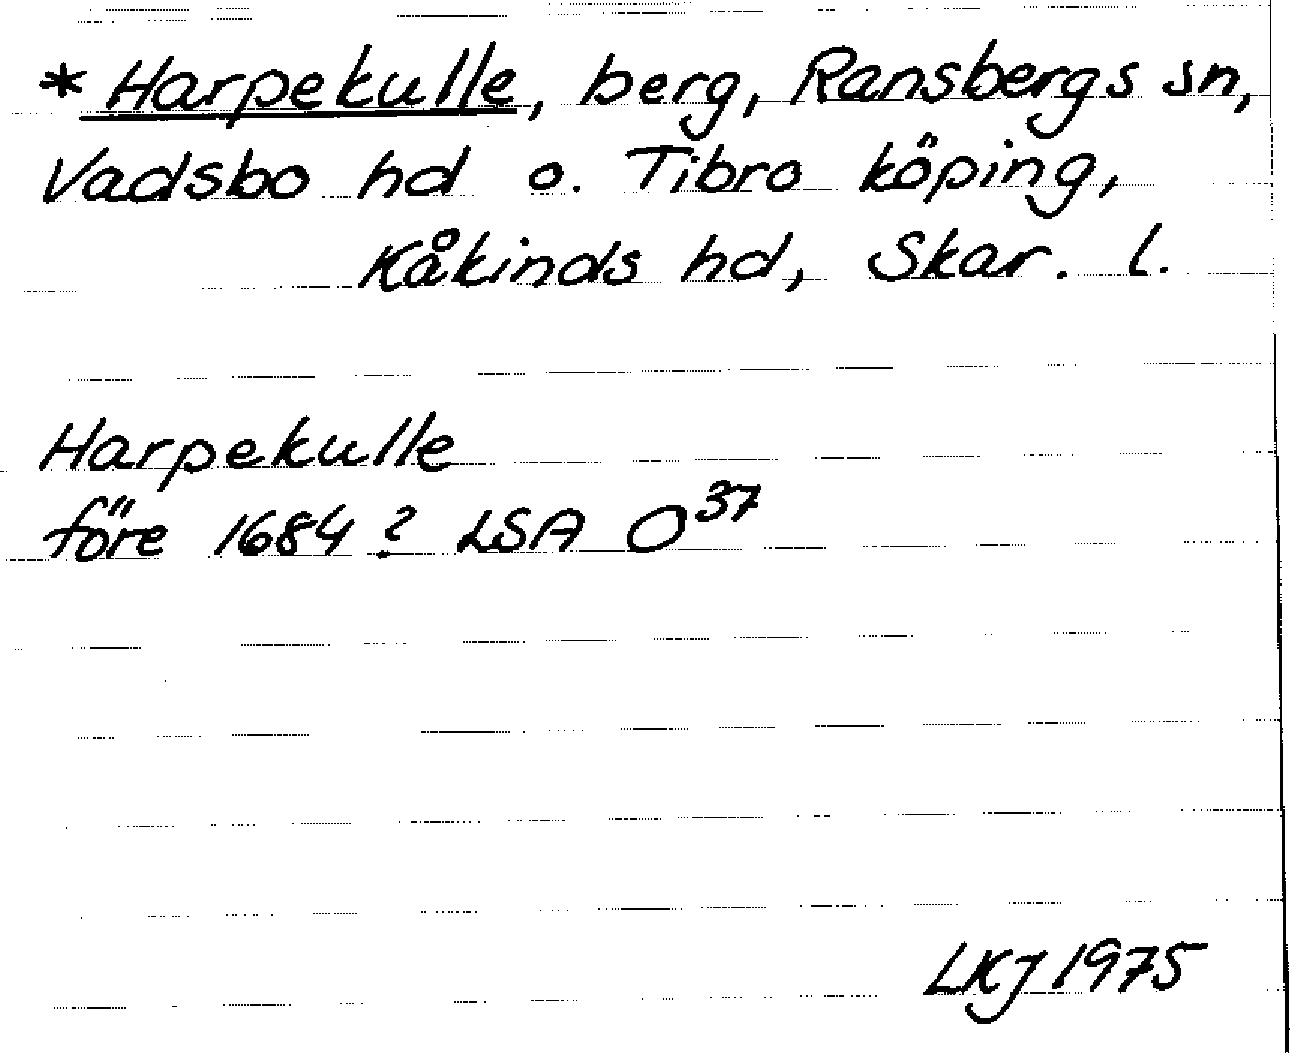 * Harpekulle, berg, Ransbergs sn,
Vadsbo hd o. Tibro köping,
Kåkinds hd, Skar. l.
Harpekulle
före 1684? LSA O³⁷
LKJ 1975